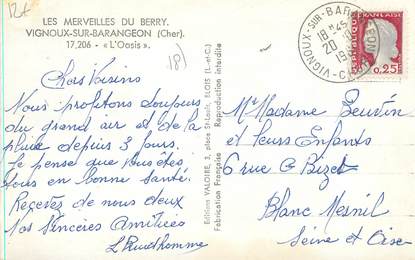 12t
LES MERVEILLES DU BERRY.
VIGNOUX-SUR-BARANGEON (Cher).
17,206 - « L'Oasis ».
18)
Chers Voisins
Nous profitons toujours
du grand air et de la
pluie depuis 3 jours.
Je pense que vous êtes
tous en bonne santé.
Recevez de nous deux
Nos Sincères Amitiées
L Prudhomme
Editions VALOIRE, 3, place St-Louis, BLOIS (L.-et-C.)
Fabrication Française Reproduction interdite
VIGNOUX-SUR-BARANGEON
18-45
20
FRANCAISE
0,25
Mr Madame
et Leurs Enfants
6 rue G Bizet
Blanc Mesnil
Seine et Oise